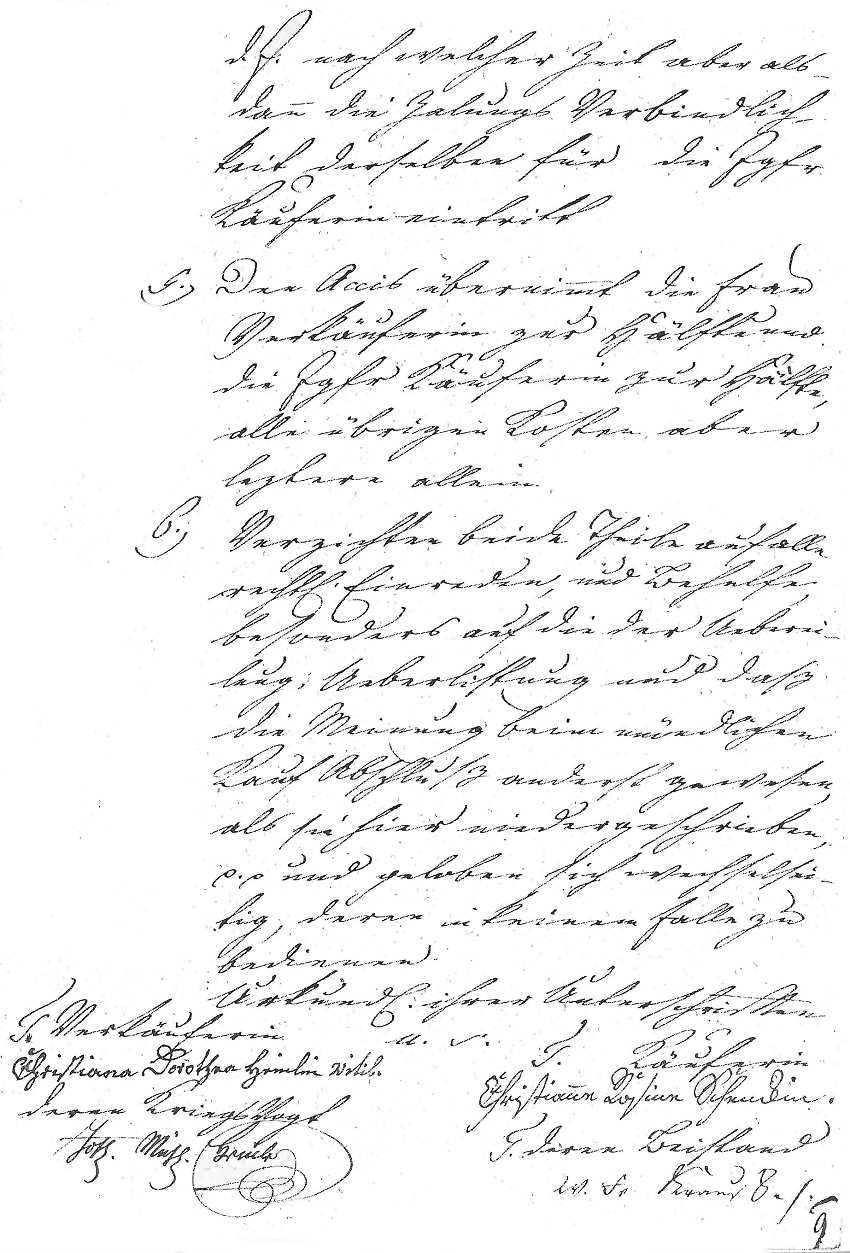 d. J. nach welcher Zeit aber als-
dan̄ die Zalungs Verbindlich-
keit derselben für die Jgfr
Käuferin eintritt
5.) Den Accis übernim̄t die Frau
Verkäuferin zur Hälfte und
die Jgfr Käuferin zur Hälfte,
alle übrigen Kosten aber
leztere allein.
6.) Verzichten beide Theile auf alle
rechtl. Einreden, und Behelfe,
besonders auf die der Ueberei-
lung, Ueberlistung und daß
die Meinung beim mündlichen
Kauf Abschluß anderst gewesen,
als sie hier niedergeschrieben,
p. p und geloben sich wechselsei-
tig, deren in keinem Falle zu
bedienen.
Urkundl. ihrer Unterschriften
T. Verkäuferin
Christiana Dorothea
deren Kriegs Vogt
Joh. Mich.
T. Käuferin
Christianne Rosine
T. deren Beistand
W. F. Kraus